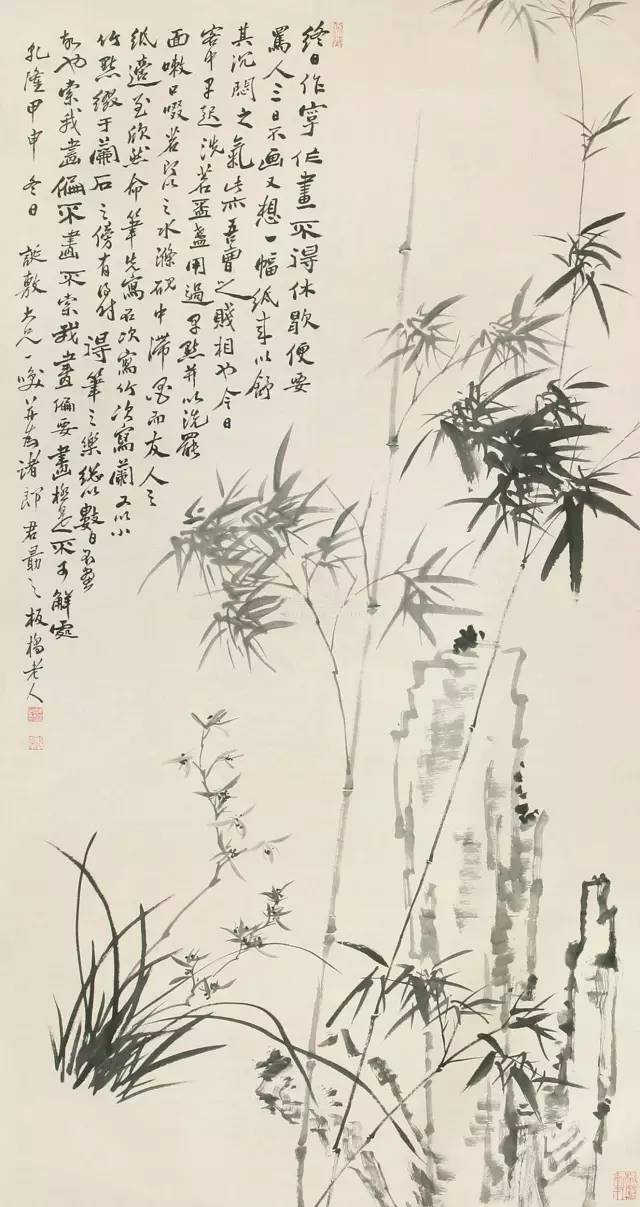 終日作字作畫不得休歇便要
罵人三日不画又想一幅紙来以舒
其沉悶之氣此亦吾曹之賤相也今日
客中早起洗若盃盞用過早點并以洗罷
面嗽口啜茗之水滌硯中滞墨而友人之
紙適至欣然命筆先寫石次寫竹次寫蘭又以小
竹點綴于蘭石之傍有得時得筆之樂総以數日不畫
故也索我畫偏不畫不索我畫偏要畫極是不可解處
乾隆甲申冬日 誕敷大兄一噱并為諸郎君勗之 板橋老人